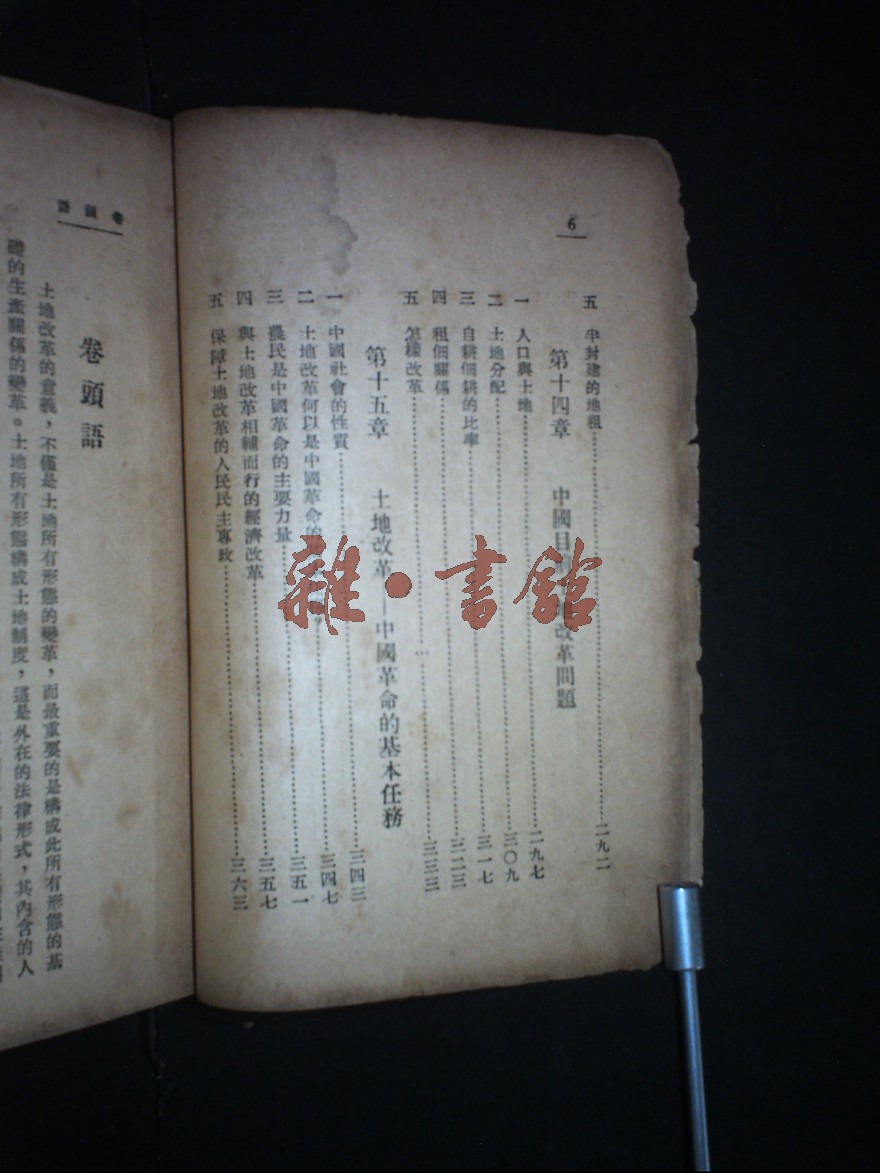 6
五 半封建的地租……二九一
第十四章 中國目 改革問題
一 人口與土地……二九七
二 土地分配……三〇九
三 自耕佃耕的比率……三一七
四 租佃關係……三二三
五 怎樣改革……三三三
第十五章 土地改革——中國革命的基本任務
一 中國社會的性質……三四三
二 土地改革何以是中國革命的……三四七
三 農民是中國革命的主要力量……三五一
四 與土地改革相輔而行的經濟改革……三五七
五 保障土地改革的人民民主專政……三六三
卷頭語
卷頭語
土地改革的意義，不僅是土地所有形態的變革，而最重要的是構成此所有形態的基
礎的生產關係的變革。土地所有形態構成土地制度，這是外在的法律形式，其內含的人
雜·書館